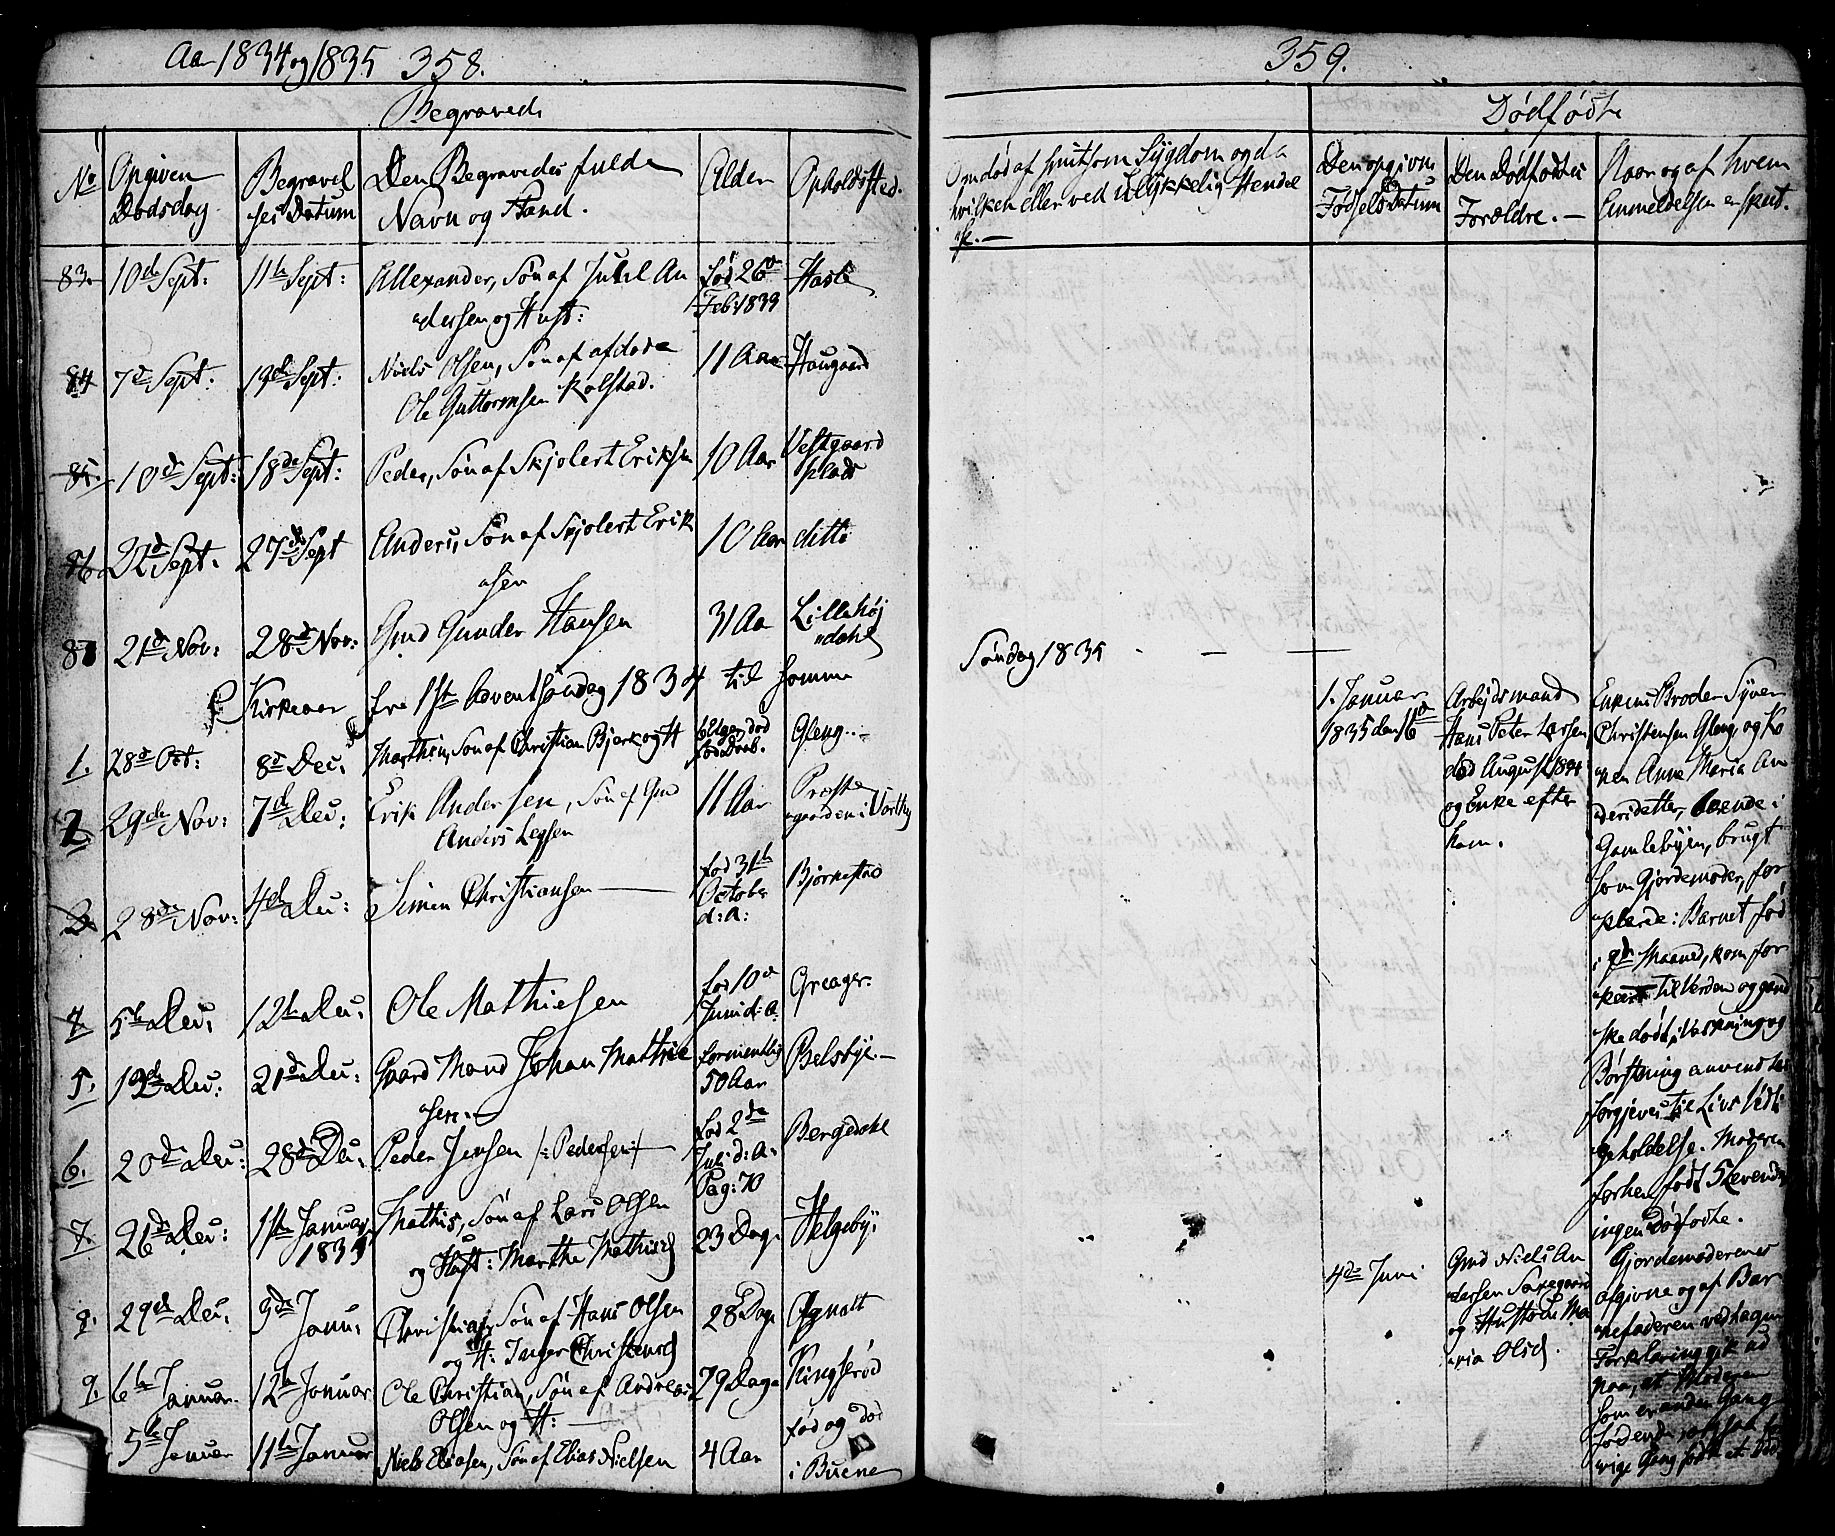 Aa 1834 og 1835 358.
Begravede
No
Opgiven
Dødsdag
Begravel
ses Datum
Den Begravedes fulde
Navn og Stand.
Alder
Opholdssted.
83. 10de Sept: 11te Sept: Allexander, Søn af Juul An
født 26de
Hasle
dersen og Hust:
Feb: 1833
84 7de Sept: 19de Sept: Niels Olsen, Søn af afdøde
11 Aar Haugaard
Ole Guttormsen Kolstad.
85. 10de Sept: 18de Sept: Peder, Søn af Skjolert Eriksen 10 Aar Vestgaard
plads
86 22de Sept. 27de Sept Anders, Søn af Skjolert Erik
10 Aar ditto
sen
87 21de Nov: 28de Nov: Gmd Gunder Hansen 31 Aa Lillehøj
dahl
Kirkeaar fra 1ste Adventsøndag 1834 til samme
1. 28de Oct: 8de Dec. Mathias, Søn af Christian Bjerk og H
Gleng
2. 29de Nov: 7de Dec: Erik Andersen, Søn af Gmd 11 Aar Præste
gaarden i Varteig
Anders Lersen
3. 28de Nov: 4de Dec: Simen Christiansen
født 31te
October
d: a:
Bjørnstad
4. 5te Dec. 12te Dec. Ole Mathiesen
født 10de
Juni d: a.
Greager.
5. 19de Dec: 21de Dec: Gaard Mand Johan Mathie
sen
formentlig
50 Aar
Belsbye.
6. 20de Dec: 28de Dec. Peder Jensen /: Pedersen :/
født 2de
Jul: d: a.
Pag: 70
Bergedahl
7. 26de Dec: 1ste Januar
1835
Mathis, Søn af Lars Olsen
og Hust: Marthe Mathisd
23 Dage Helgebye
8. 29de Dec. 3de Janu. Christian, Søn af Hans Olsen
og H: Inger Christensd
28 Dage Agnalt
9. 6te Januar 12te Januar Ole Christian, Søn af Andreas
Olsen og H:
29 Dage Ringserød
5te Januar 11te Januar Niels Eliasen, Søn af Elias Nielsen 4 Aar
født og død
i Buene
359.
Dødfødte
Om død af hvilken Sygdom og da
hvilken eller ved ulykkelig Hendel
se.
Den opgivne
Fødsels Datum
Den Dødfødtes
Forældre.
Naar og af hvem
Anmeldelsen er skeet.
Søndag 1835
1. Januar
1835 den 16de
Arbejdsmand
Hans Peter Larsen
død August 1834
og Enke efter
ham.
Enkens Broder Syver
Christensen Gleng og Ko
nen Anne Maria An
dersdatter, boende i
Gamlebyen, brugt
som Gjordemoder, for
klarede: Barnet født
i 9de Maaned, kom for
kert til Verden og gand
ske dødt, Vaskning og
Børstning anvendtes
forgjeves til Livs Vedli
geholdelse. Moderen
forhen født 5 levende,
ingen Dødfødte.
4de Juni
Gmd Niels An
dersen
og Hustrue Ma
ria Olsd.
Gjordemoderenes
afgivne og af Bar
nefaderen vedtagne
Forklaring gik ud
paa, at Moderen
som er anden Gang
fødende
rige Gang født et Død